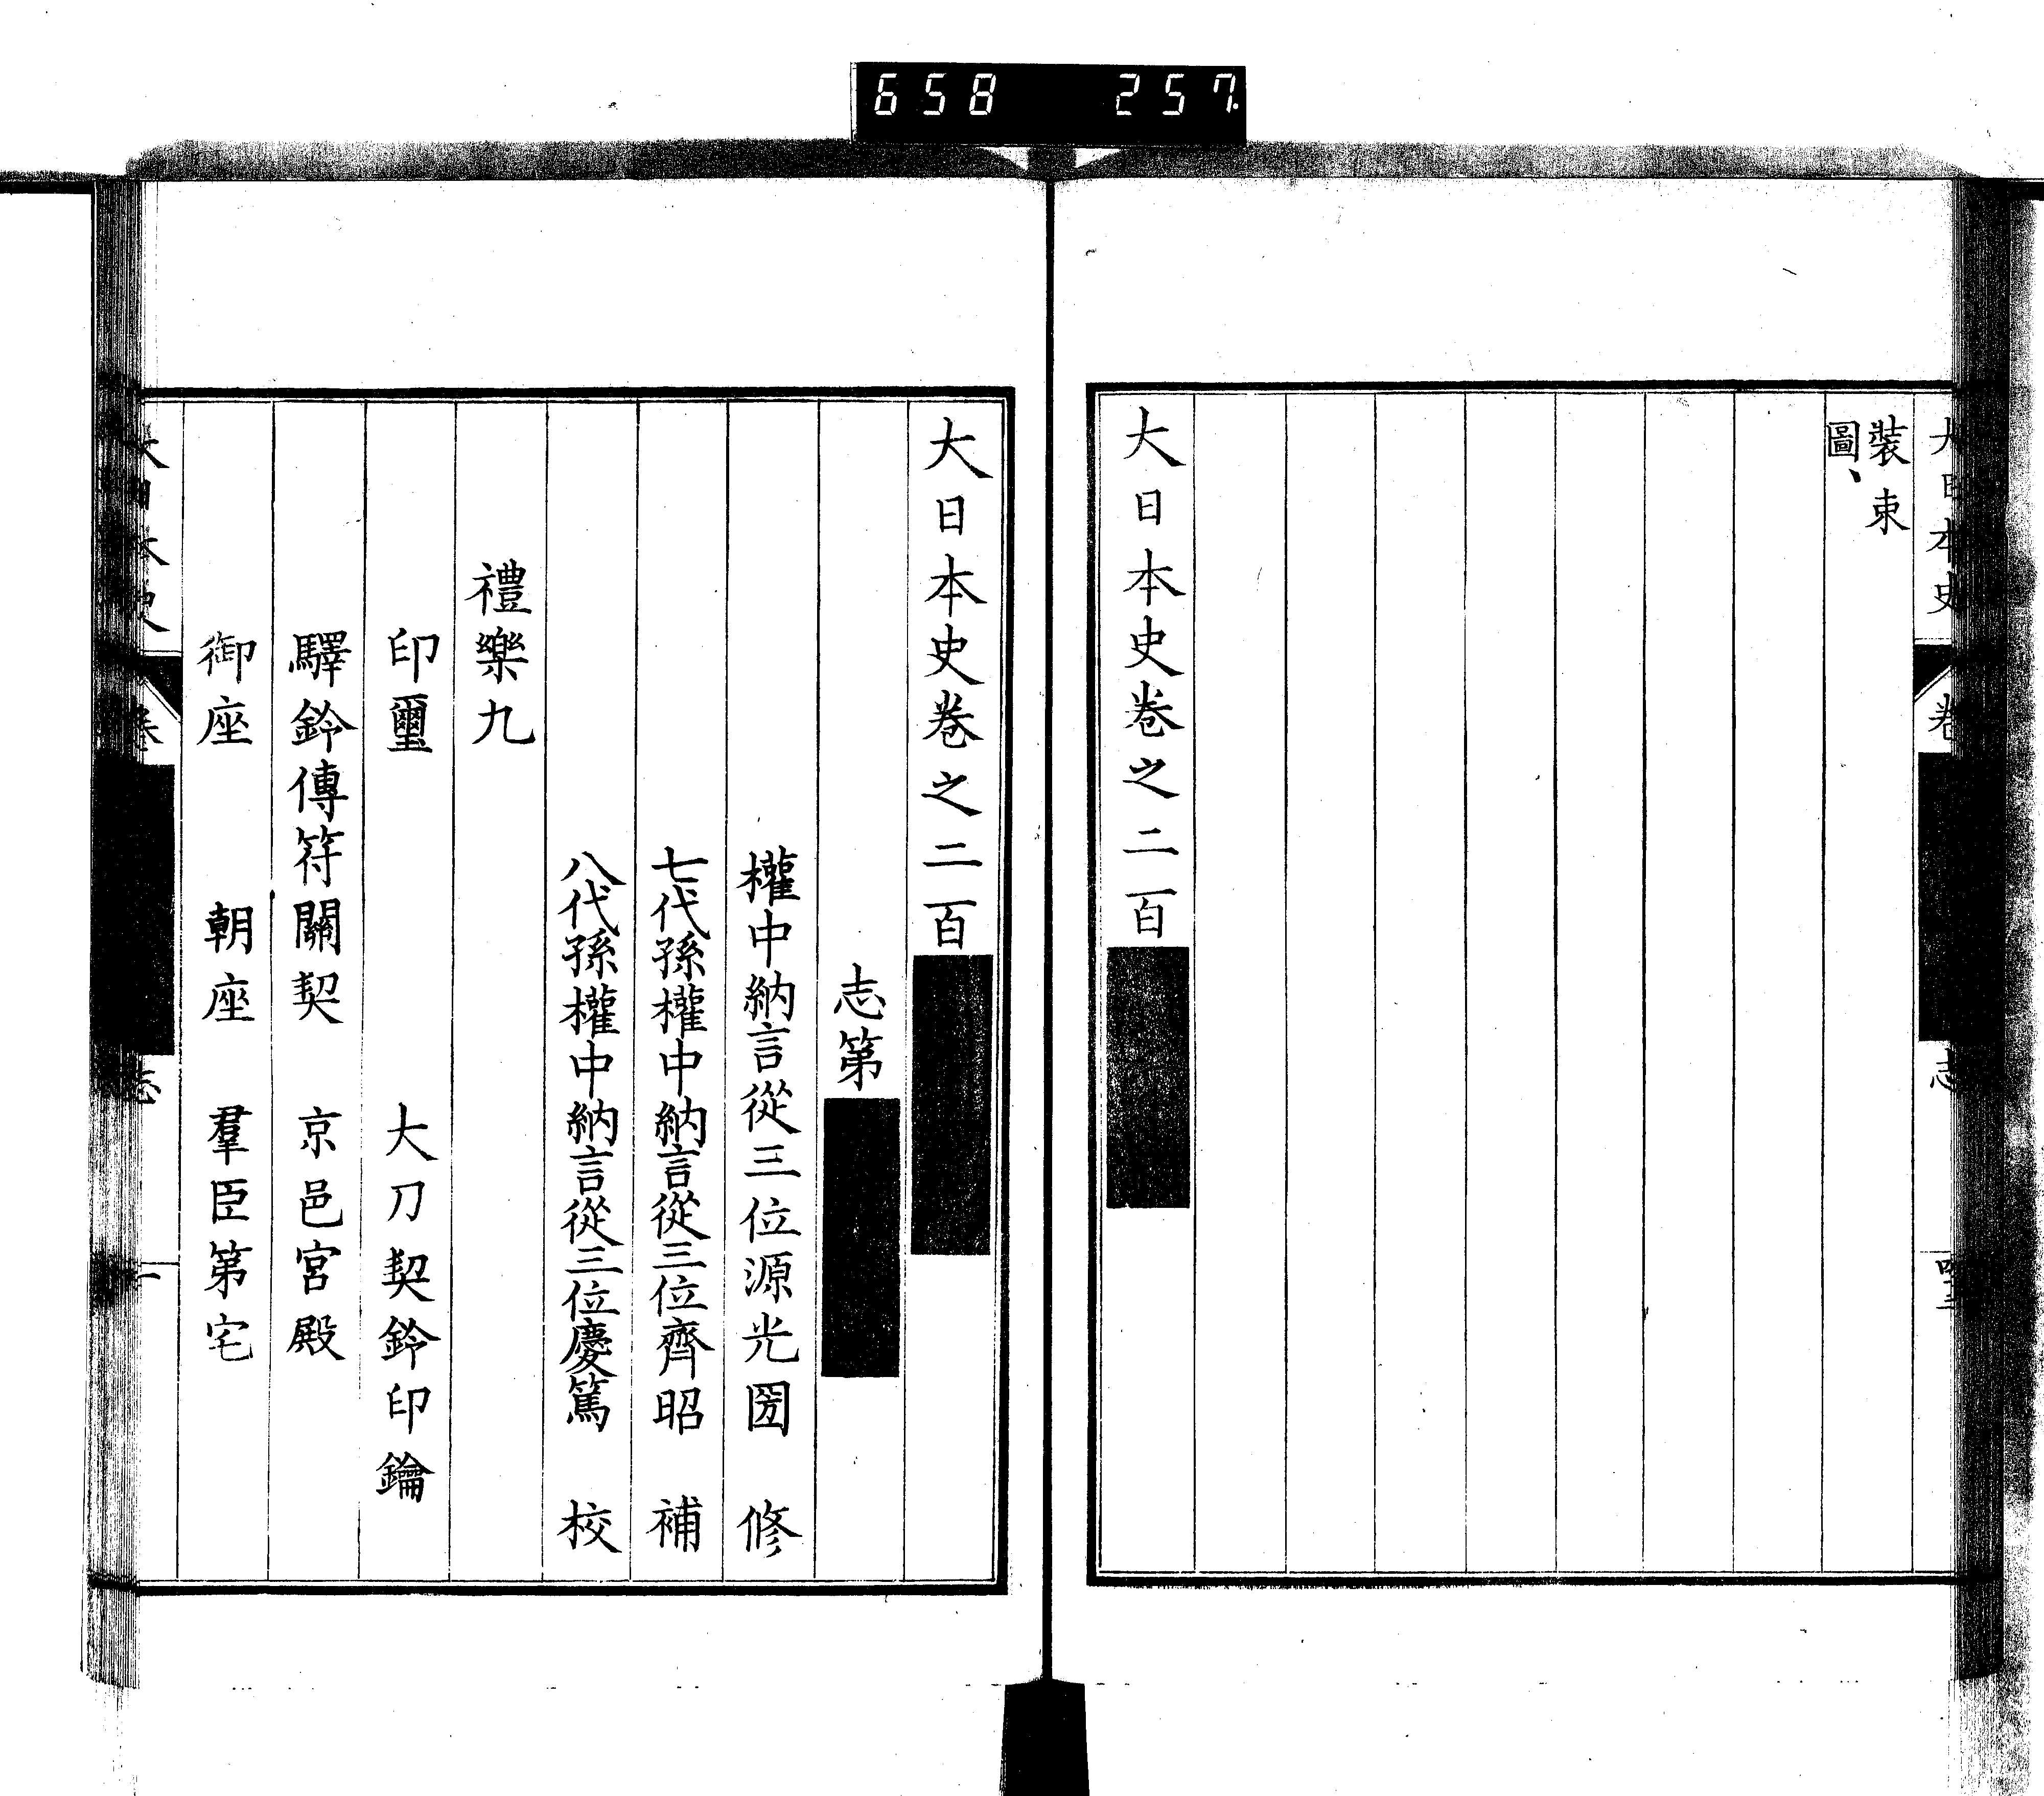 658 257
大日本史 卷 志
裝束
圖、
大日本史卷之二百
大日本史卷之二百
志第
權中納言從三位源光圀 修
七代孫權中納言從三位齊昭 補
八代孫權中納言從三位慶篤 校
禮樂九
印璽 大刀契鈴印鑰
驛鈴傳符關契 京邑宮殿
御座 朝座 羣臣第宅
大日本史 卷 志 一